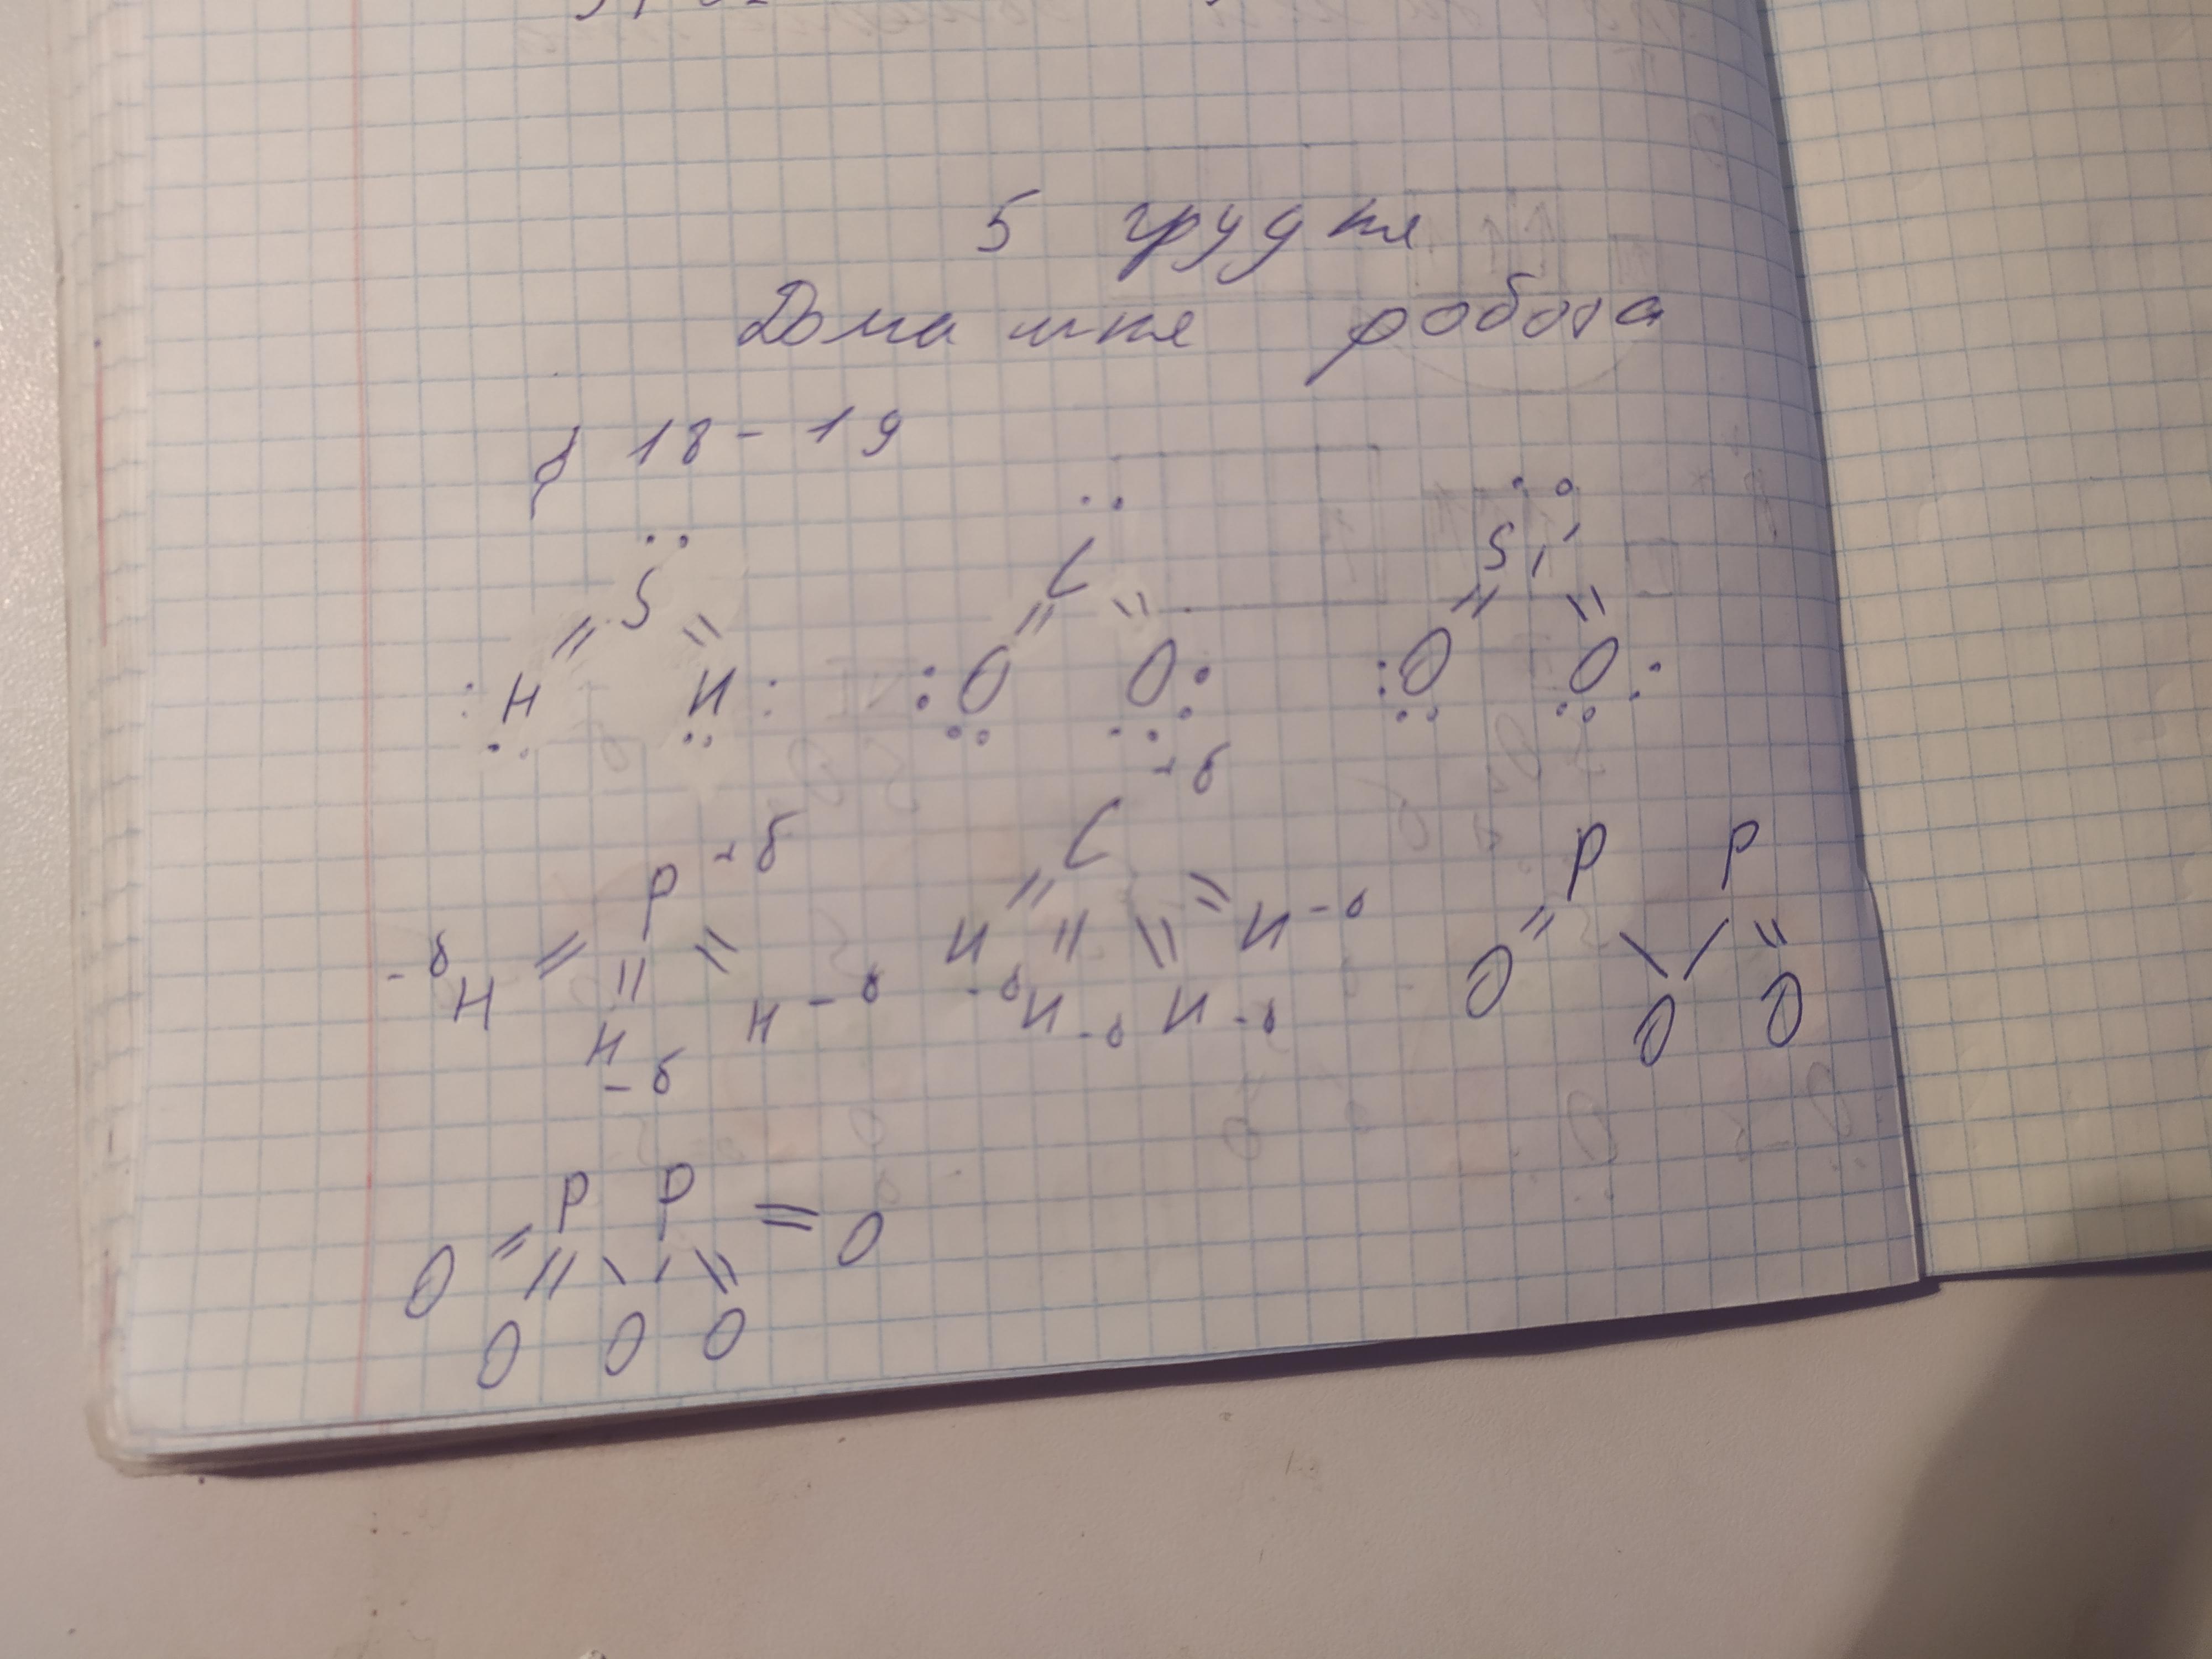 5 грудня
Домашня робота
§ 18-19
S C Si
H H O O O O
P +δ C +δ P P
-δ H H -δ H -δ H -δ H -δ H -δ O O O
H -δ
P P = O
O O O O